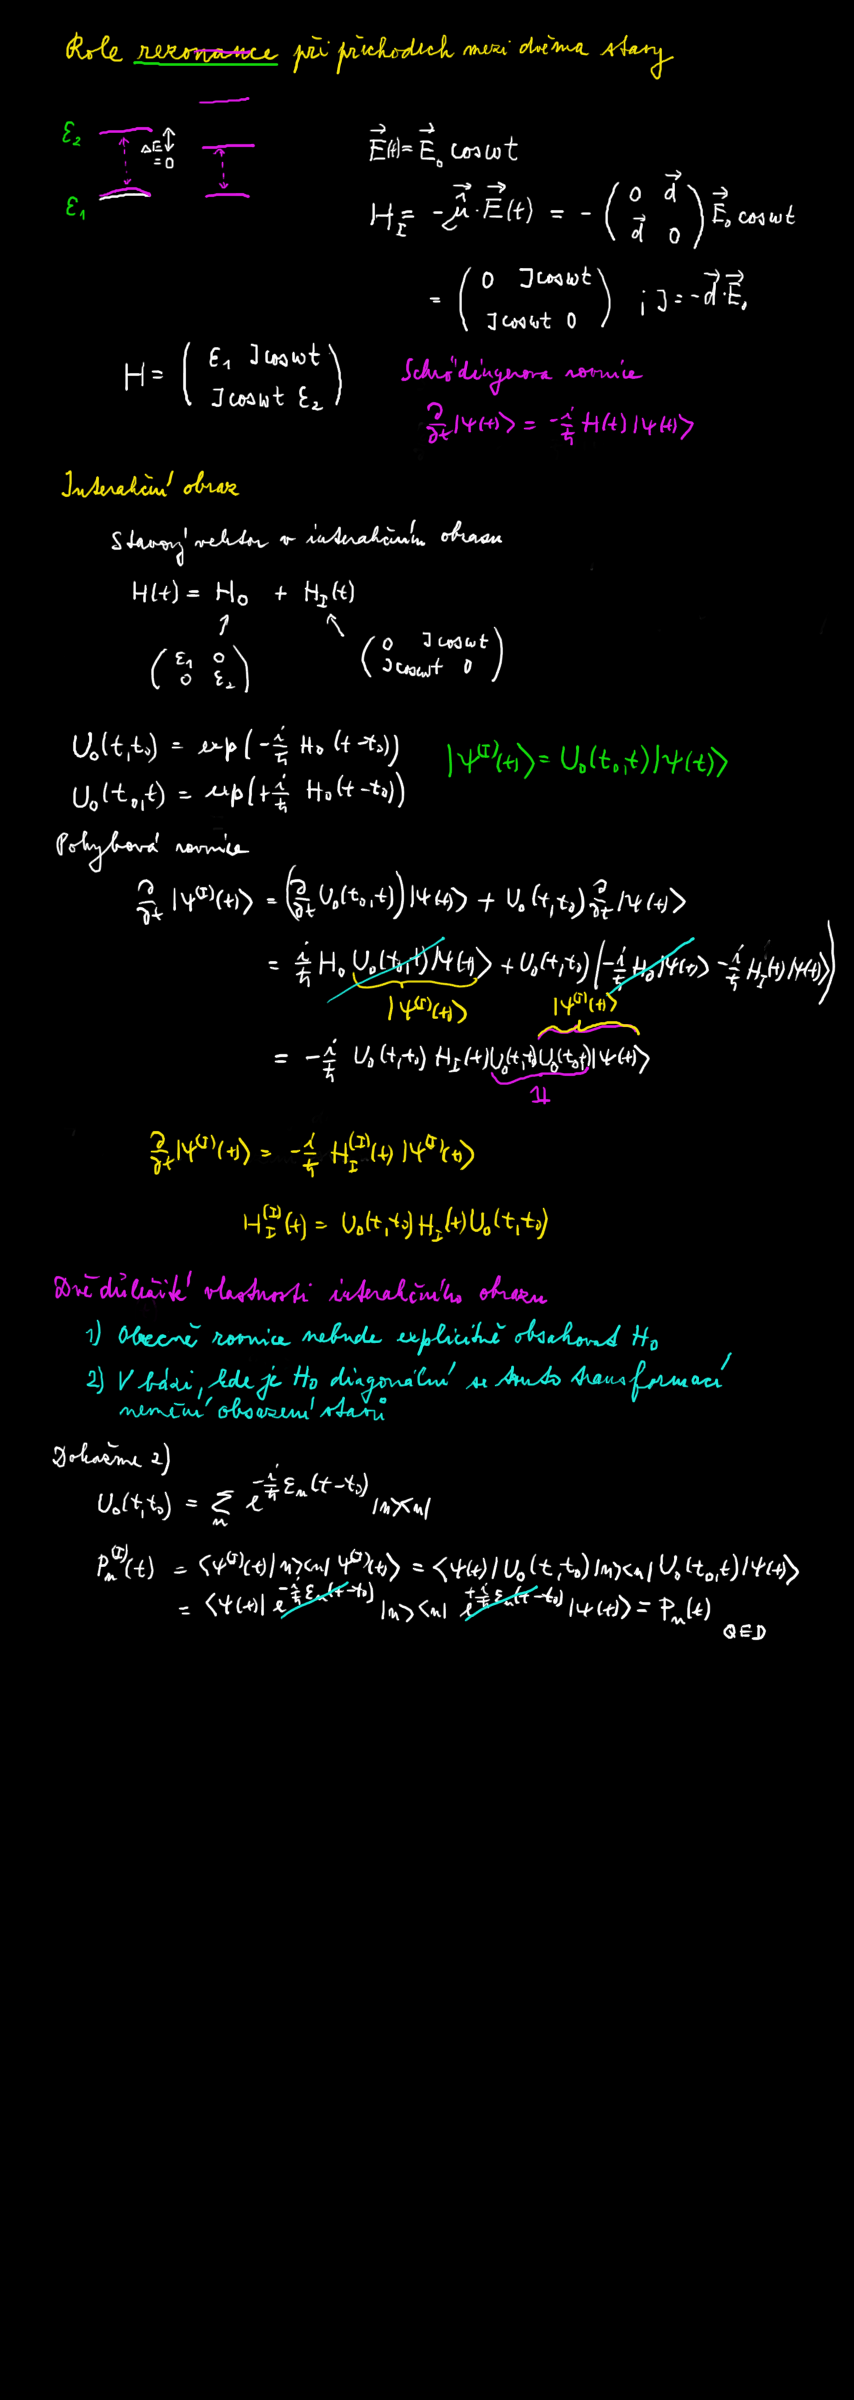 Role rezonance při přechodech mezi dvěma stavy
ε₂ ΔE = 0
ε₁
E⃗(t) = E⃗₀ cos ωt
H_I = -μ̂⃗ · E⃗(t) = - ( 0 d⃗ ; d⃗ 0 ) E⃗₀ cos ωt
= ( 0 J cos ωt ; J cos ωt 0 ) ; J = -d⃗·E⃗₀
H = ( ε₁ J cos ωt ; J cos ωt ε₂ )
Schrödingerova rovnice
∂/∂t |ψ(t)⟩ = -i/ħ H(t) |ψ(t)⟩
Interakční obraz
Stavový vektor v interakčním obrazu
H(t) = H₀ + H_I(t)
( ε₁ 0 ; 0 ε₂ ) ( 0 J cos ωt ; J cos ωt 0 )
U₀(t,t₀) = exp(-i/ħ H₀ (t-t₀))
U₀(t₀,t) = exp(+i/ħ H₀ (t-t₀))
|ψ^(I)(t)⟩ = U₀(t₀,t) |ψ(t)⟩
Pohybová rovnice
∂/∂t |ψ^(I)(t)⟩ = (∂/∂t U₀(t₀,t)) |ψ(t)⟩ + U₀(t,t₀) ∂/∂t |ψ(t)⟩
= i/ħ H₀ U₀(t₀,t) |ψ(t)⟩ + U₀(t,t₀) (-i/ħ H₀ |ψ(t)⟩ - i/ħ H_I(t) |ψ(t)⟩)
|ψ^(I)(t)⟩ |ψ^(I)(t)⟩
= -i/ħ U₀(t,t₀) H_I(t) U₀(t,t₀) U₀(t₀,t) |ψ(t)⟩
1
∂/∂t |ψ^(I)(t)⟩ = -i/ħ H_I^(I)(t) |ψ^(I)(t)⟩
H_I^(I)(t) = U₀(t,t₀) H_I(t) U₀(t,t₀)
Dvě důležité vlastnosti interakčního obrazu
1) Obecně rovnice nebude explicitně obsahovat H₀
2) V bázi, kde je H₀ diagonální se touto transformací
nemění obsazení stavů
Dokažme 2)
U₀(t,t₀) = Σ_n e^(-i/ħ ε_n (t-t₀)) |n⟩⟨n|
P_n^(I)(t) = ⟨ψ^(I)(t)|n⟩⟨n|ψ^(I)(t)⟩ = ⟨ψ(t)|U₀(t,t₀)|n⟩⟨n|U₀(t₀,t)|ψ(t)⟩
= ⟨ψ(t)| e^(-i/ħ ε_n (t-t₀)) |n⟩⟨n| e^(+i/ħ ε_n (t-t₀)) |ψ(t)⟩ = P_n(t)
QED